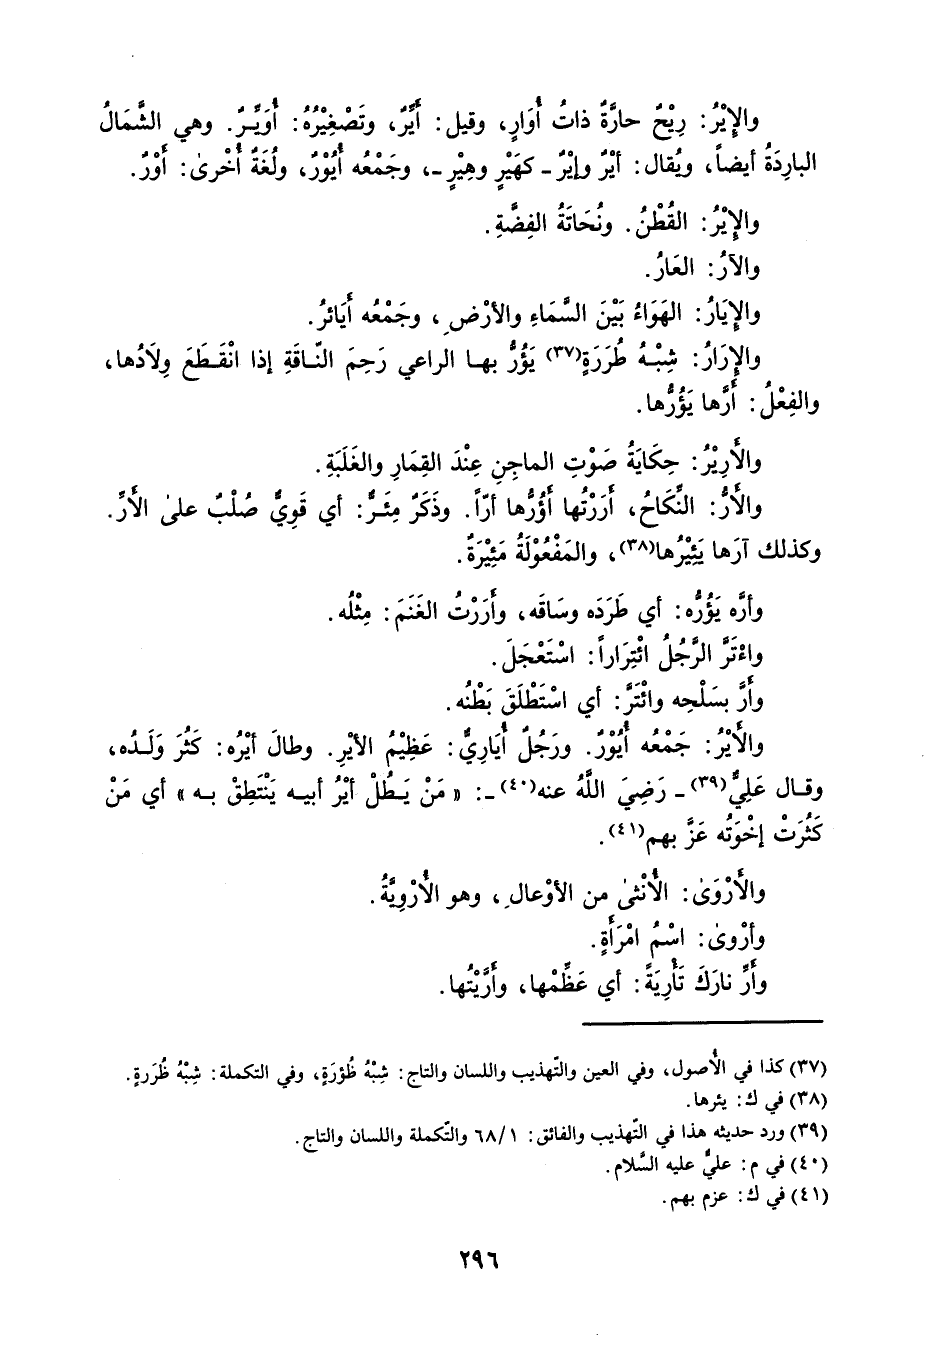 والإِيْرُ: رِيْحٌ حارَّةٌ ذاتُ أُوَارٍ، وقيل: أَيِّرٌ، وتَصْغِيْرُهُ: أُوَيِّـرٌ. وهي الشَّمَالُ
البارِدَةُ أيضاً، ويُقال: أيْرٌ وإيْرٌ ـ كهَيْرٍ وهِيْرٍ ـ، وجَمْعُه أُيُوْرٌ، ولُغَةٌ أُخْرىٰ: أَوْرٌ.
والإِيْرُ: القُطْنُ. ونُحَاتَةُ الفِضَّةِ.
والآرُ: العَارُ.
والإِيَارُ: الهَوَاءُ بَيْنَ السَّمَاءِ والأرْضِ، وجَمْعُه أَيَائرُ.
والإِرَارُ: شِبْـهُ طُرَرَةٍ(٣٧) يَؤُرُّ بهـا الراعي رَحِمَ النّـاقَةِ إذا انْقَـطَعَ وِلَادُها،
والفِعْلُ: أَرَّها يَؤُرُّها.
والأَرِيْرُ: حِكَايَةُ صَوْتِ الماجِنِ عِنْدَ القِمَارِ والغَلَبَةِ.
والأَرُّ: النِّكَاحُ، أَرَرْتُها أَؤُرُّها أرّاً. وذَكَرٌ مِئَـرٌّ: أي قَوِيٌّ صُلْبٌ علىٰ الأَرِّ.
وكذلك آرَها يَئِيْرُها(٣٨)، والمَفْعُوْلَةُ مَئِيْرَةٌ.
وأَرَّه يَؤُرُّه: أي طَرَدَه وسَاقَه، وأَرَرْتُ الغَنَمَ: مِثْلُه.
واءْتَرَّ الرَّجُلُ ائْتِرَاراً: اسْتَعْجَلَ.
وأَرَّ بسَلْحِه وائْتَرَّ: أي اسْتَطْلَقَ بَطْنُه.
والأَيْرُ: جَمْعُه أُيُوْرٌ. ورَجُلٌ أُيَارِيٌّ: عَظِيْمُ الأيْرِ. وطالَ أيْرُه: كَثُرَ وَلَـدُه،
وقـال عَلِيٌّ(٣٩) ـ رَضِيَ اللَّهُ عنه(٤٠) ـ: «مَنْ يَـطُلْ أيْرُ أبيـه يَنْتَطِقْ بـه» أي مَنْ
كَثُرَتْ إخْوَتُه عَزَّ بهم(٤١).
والأَرْوَىٰ: الأُنْثىٰ من الأوْعالِ، وهو الأُرْوِيَّةُ.
وأرْوىٰ: اسْمُ امْرَأةٍ.
وأَرِّ نارَكَ تَأْرِيَةً: أي عَظِّمْها، وأَرَّيْتُها.
(٣٧) كذا في الأُصول، وفي العين والتّهذيب واللسان والتاج: شِبْهُ ظُؤرَةٍ، وفي التكملة: شِبْهُ ظُرَرةٍ.
(٣٨) في ك: يئرها.
(٣٩) ورد حديثه هذا في التّهذيب والفائق: ٦٨/١ والتّكملة واللسان والتاج.
(٤٠) في م: عليٌّ عليه السَّلام.
(٤١) في ك: عزم بهم.
٢٩٦